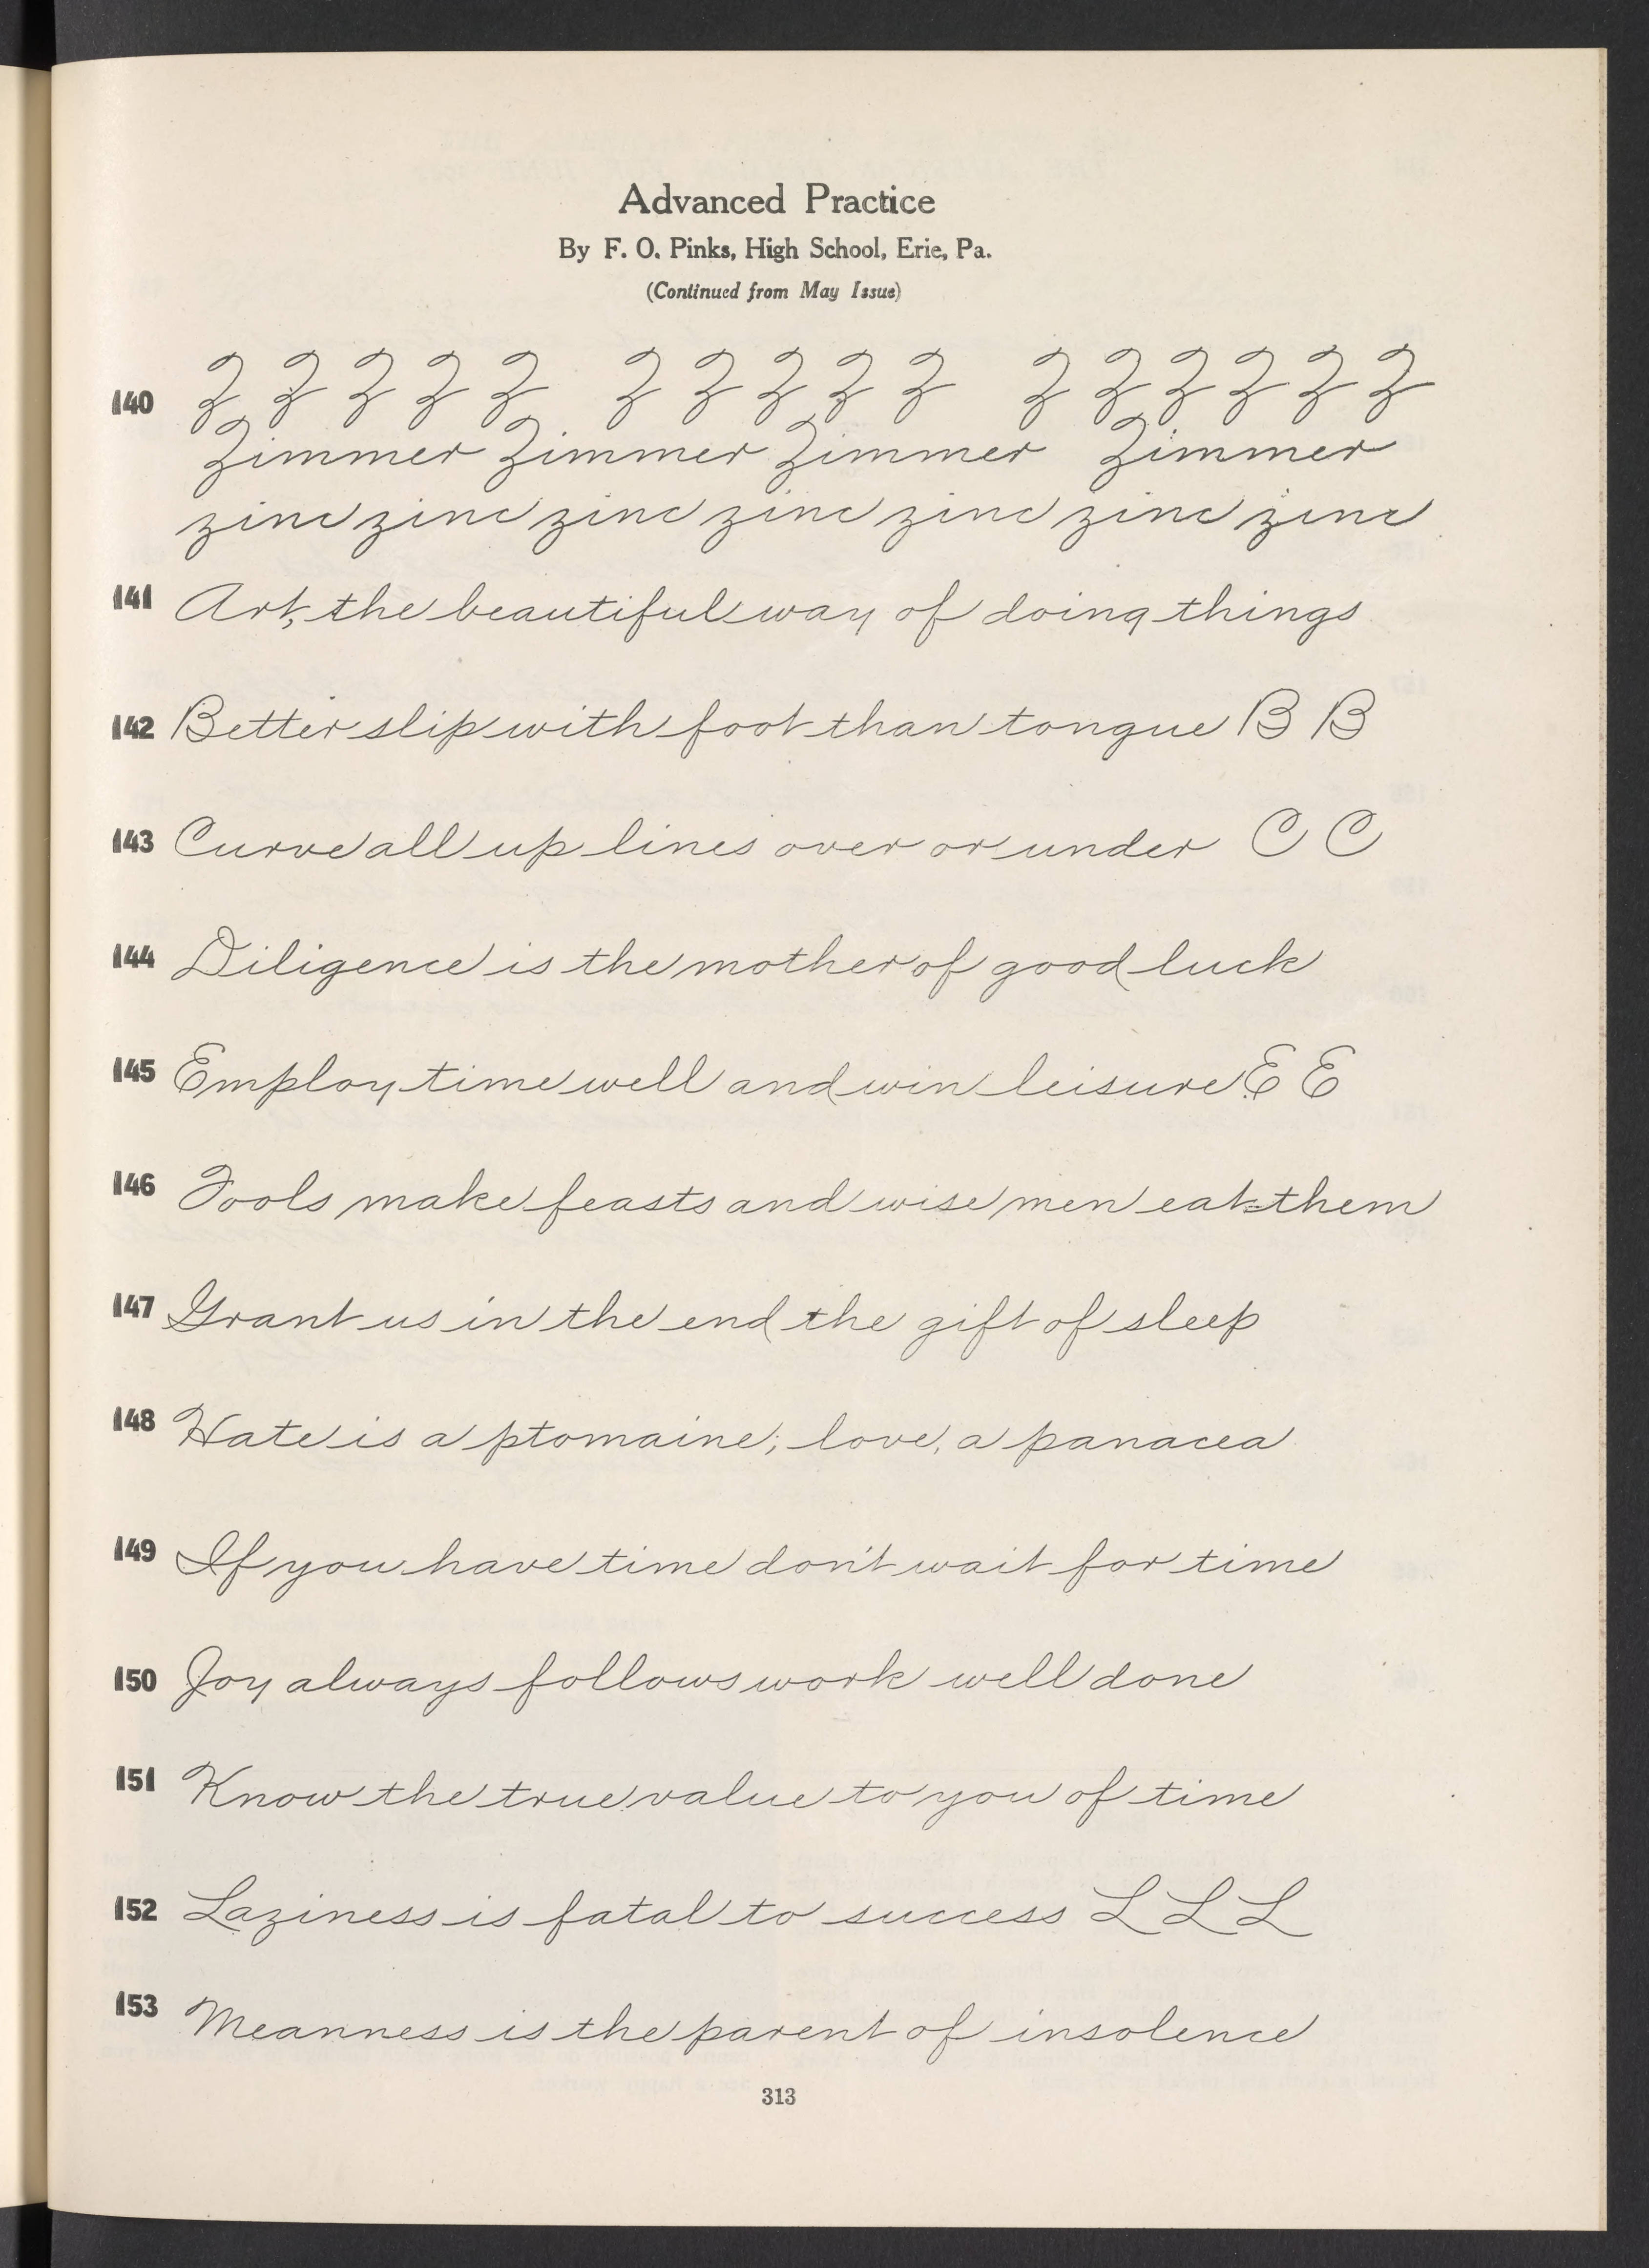 Advanced Practice
By F. O. Pinks, High School, Erie, Pa.
(Continued from May Issue)
140 Z Z Z Z Z Z Z Z Z Z Z Z Z Z Z Z
Zimmer Zimmer Zimmer Zimmer
zinc zinc zinc zinc zinc zinc zinc
141 Art, the beautiful way of doing things
142 Better slip with foot than tongue B B
143 Curve all up lines over or under C C
144 Diligence is the mother of good luck
145 Employ time well and win leisure E E
146 Fools make feasts and wise men eat them
147 Grant us in the end the gift of sleep
148 Hate is a ptomaine; love, a panacea
149 If you have time don't wait for time
150 Joy always follows work well done
151 Know the true value to you of time
152 Laziness is fatal to success L L L
153 Meanness is the parent of insolence
313